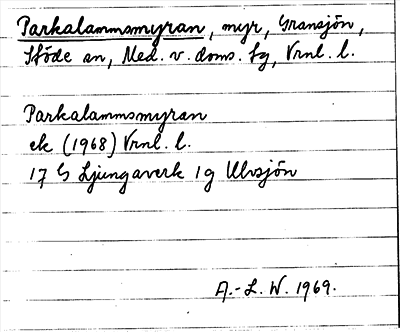 Parkalammsmyran, myr, Gransjön,
Stöde sn, Med. v. doms. fg, Vrnl. l.
Parkalammsmyran
ek (1968) Vrnl. l.
17 G Ljungaverk 1g Ulvsjön
A.-L. W. 1969.